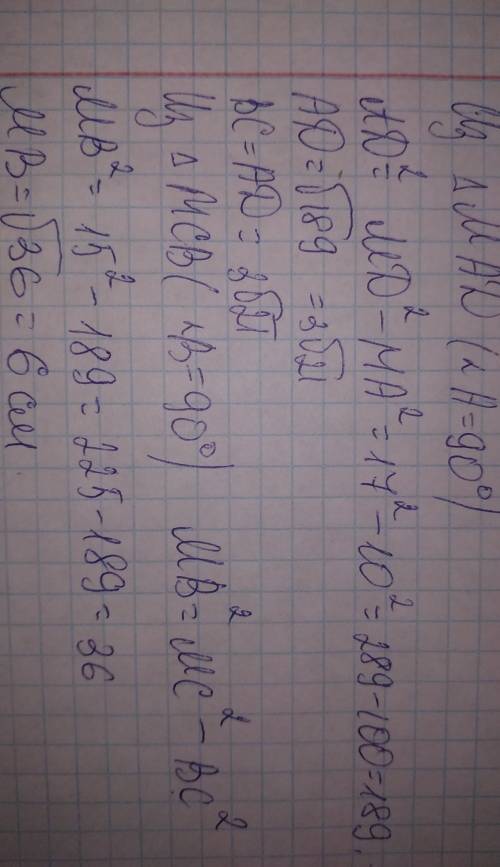 Из △ MAD (∠A=90°)
AD² = MD² - MA² = 17² - 10² = 289-100=189.
AD=√189 = 3√21
BC = AD = 3√21
Из △ MCB (∠B=90°) MB² = MC² - BC²
MB² = 15² - 189 = 225-189 = 36
MB=√36 = 6 см.